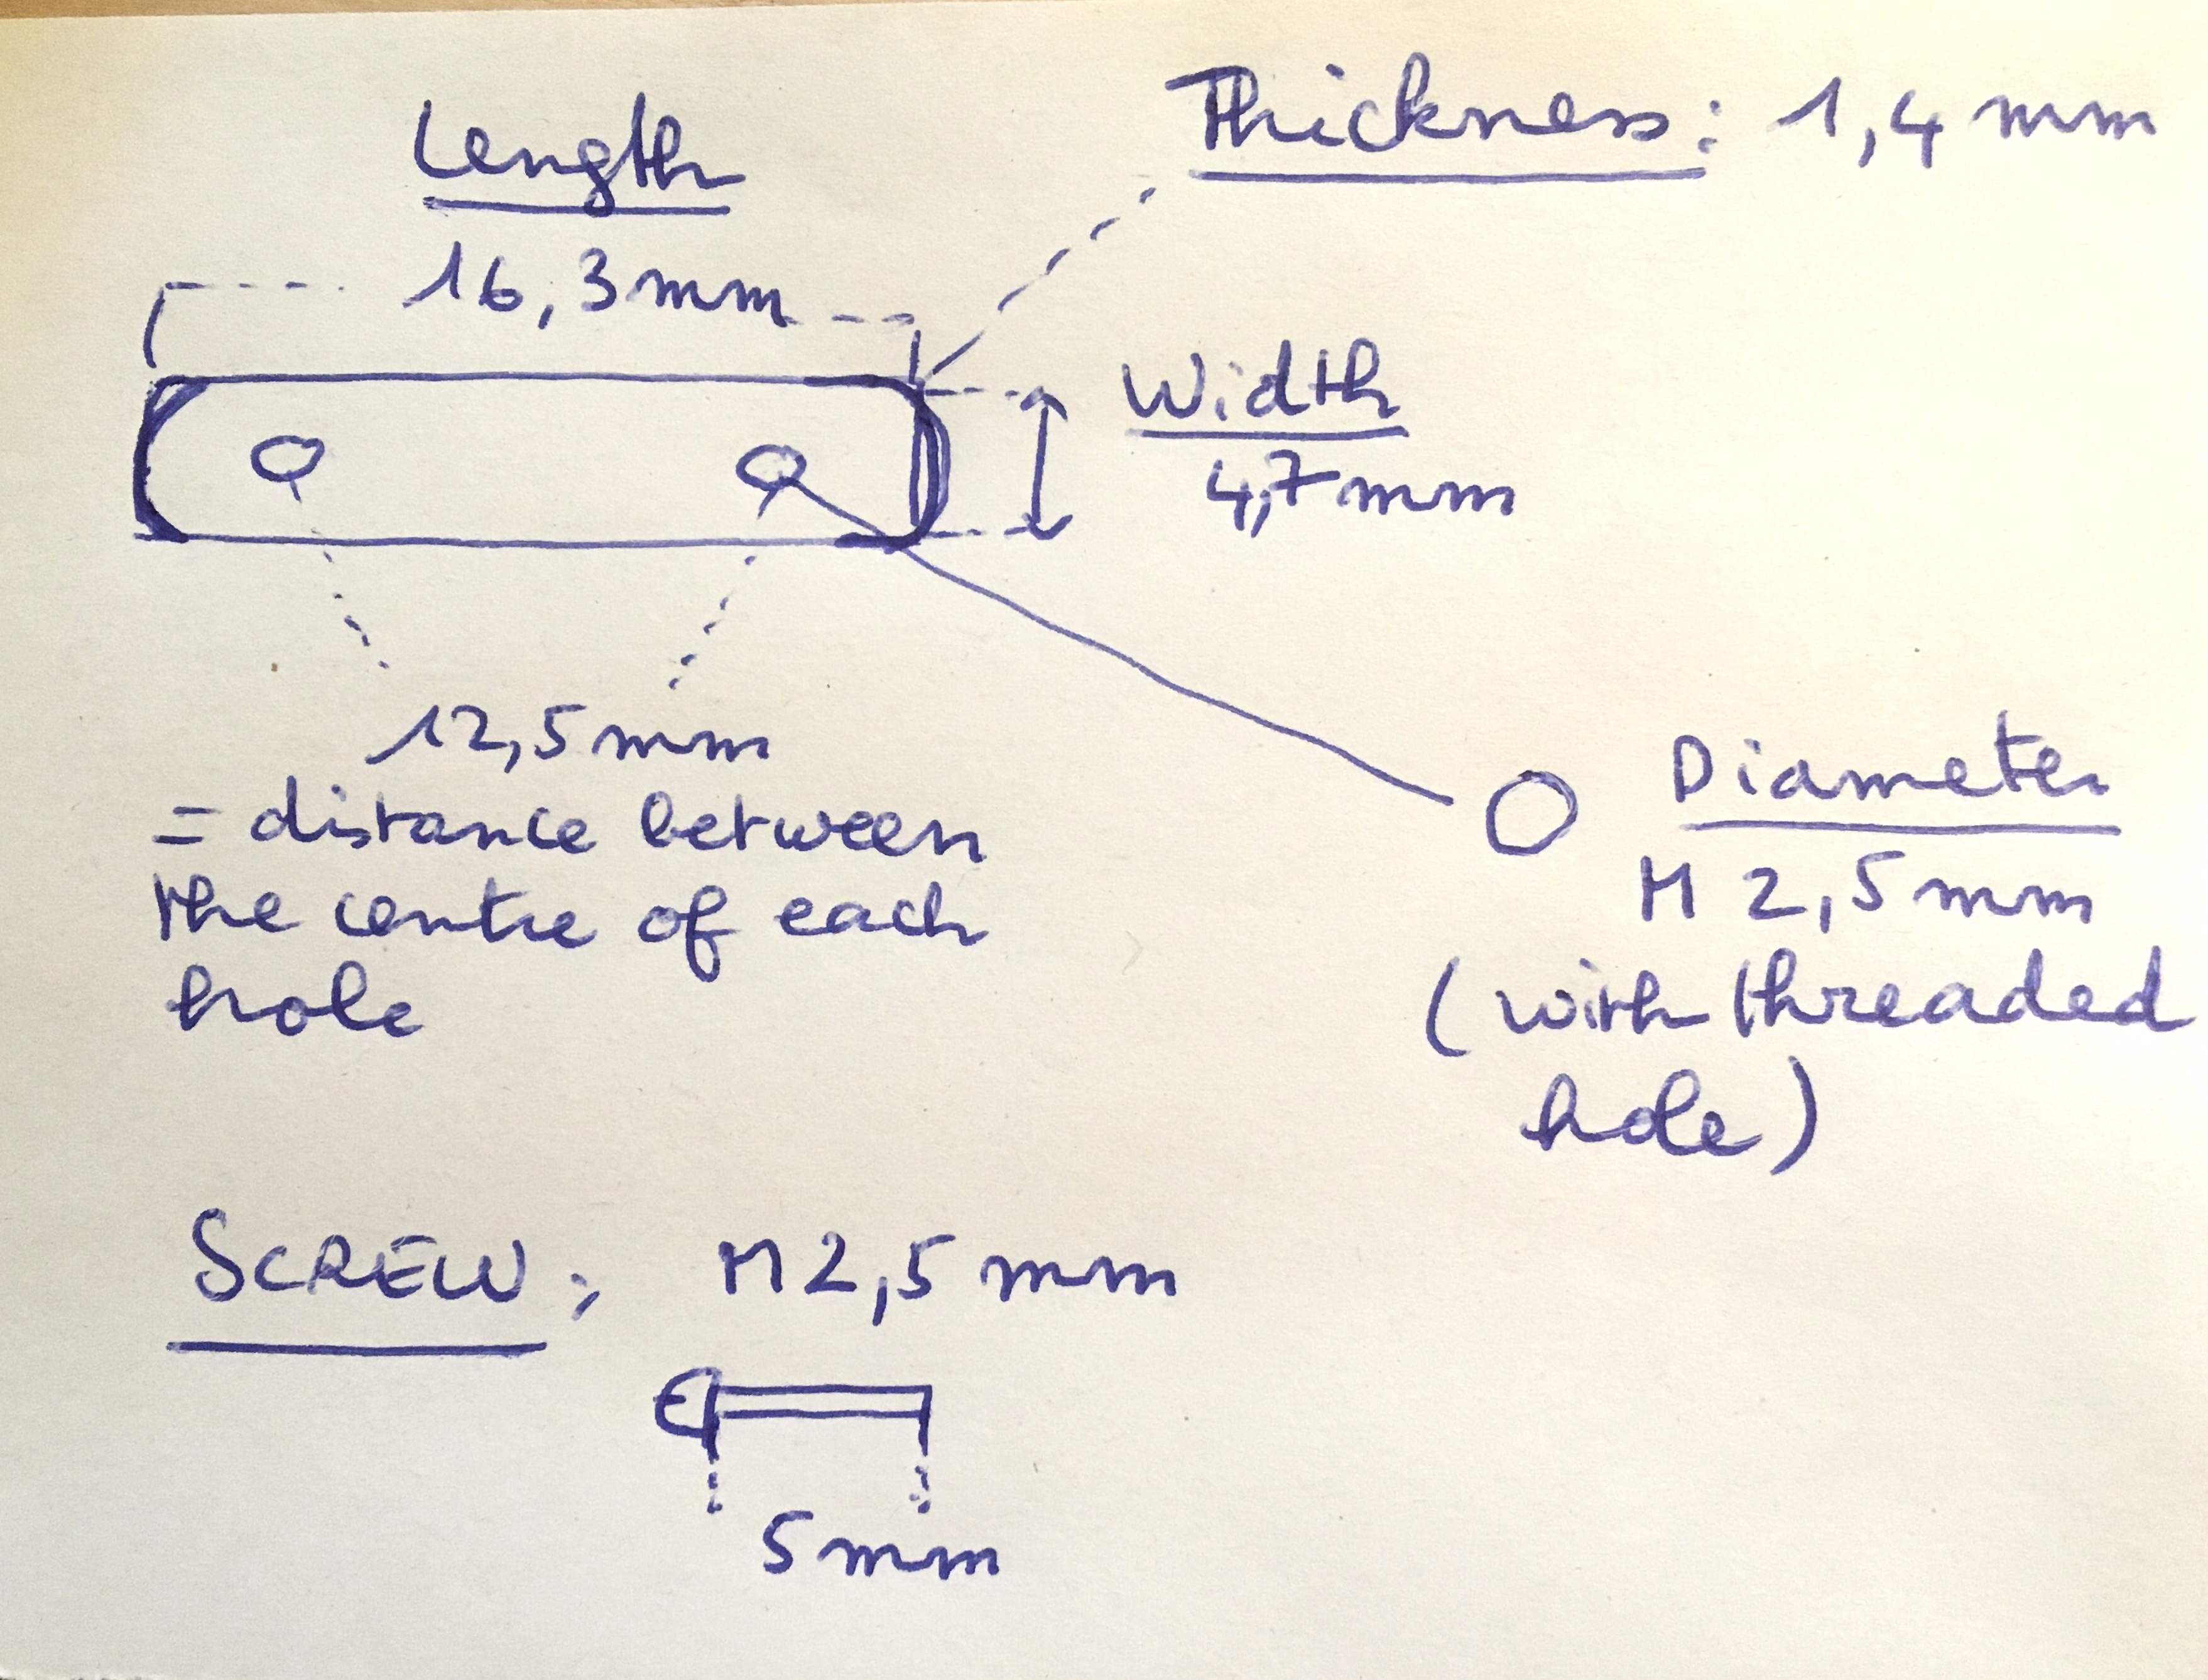 Length
16,3mm
Thickness: 1,4 mm
Width
4,7mm
12,5mm
= distance between
the centre of each
hole
Diameter
M 2,5mm
(with threaded
hole)
SCREW: M2,5mm
5mm